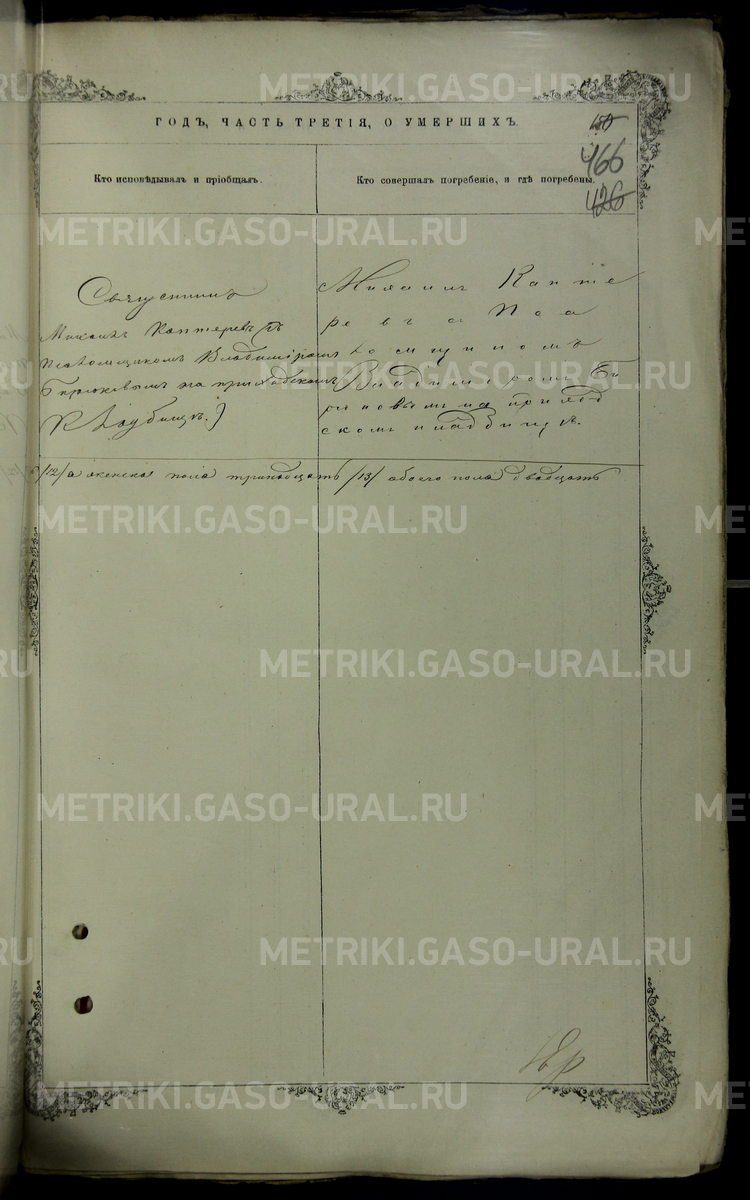 METRIKI.GASO-URAL.RU
ГОДЪ, ЧАСТЬ ТРЕТІЯ, О УМЕРШИХЪ.
150
466
426
Кто исповѣдывалъ и пріобщалъ.
Кто совершалъ погребеніе, и гдѣ погребены.
Священникъ
Михаилъ Каптеревъ съ
Псаломщикомъ Владимиромъ
Бирюковымъ на приходскомъ
Кладбищѣ.)
Михаилъ Капте
ревъ съ Пса
ломщикомъ
Владимиромъ Би
рюковымъ на приход
скомъ кладбищѣ.
/12/ а женска пола тринадцать /13/ обоего пола двадцать
METRIKI.GASO-URAL.RU
METRIKI.GASO-URAL.RU
METRIKI.GASO-URAL.RU
METRIKI.GASO-URAL.RU
METRIKI.GASO-URAL.RU
METRIKI.GASO-URAL.RU
METRIKI.GASO-URAL.RU